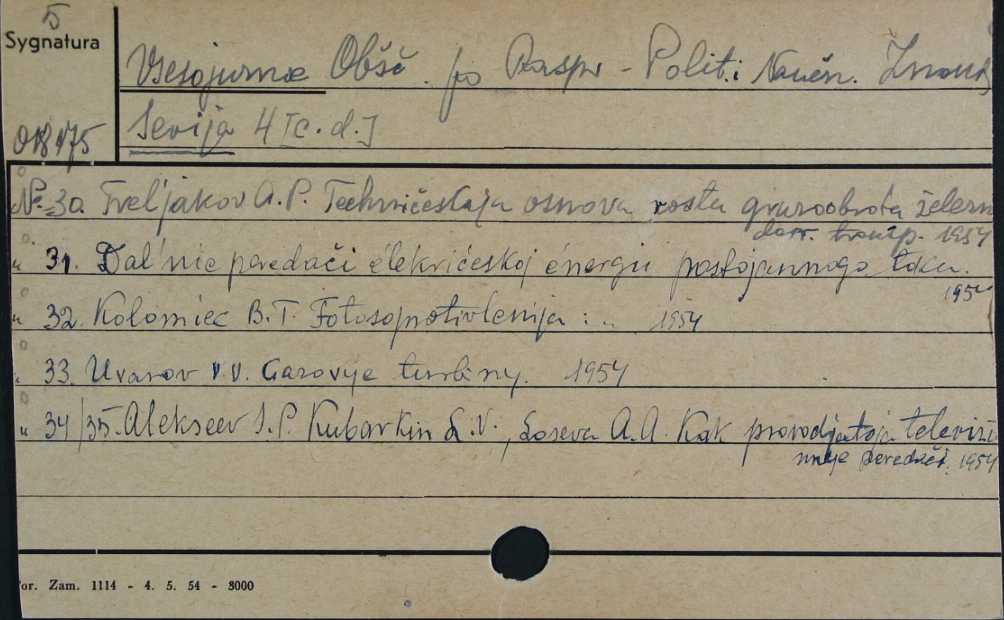 5
Sygnatura
Vsesojuznoe Obšč. po Raspr - Polit. i Naučn. Znanij
018175
Serija 4 [c.d.]
Nr. 30 Treljakov A.P. Techničeskaja osnova rosta gruzooborota železn
dor. transp. 1954
" 31. Dal'nie peredači élekričeskoj énergii postojannogo toka.
1954
" 32. Kolomiec B.T. Fotosoprotivlenija : .. 1954
" 33. Uvarov V.V. Gazovye turbiny. 1954
" 34/35. Alekseev S.P. Kubarkin L.V., Loseva A.A. Kak provodjatsja televizi
nnye peredači. 1954
or. Zam. 1114 - 4. 5. 54 - 3000